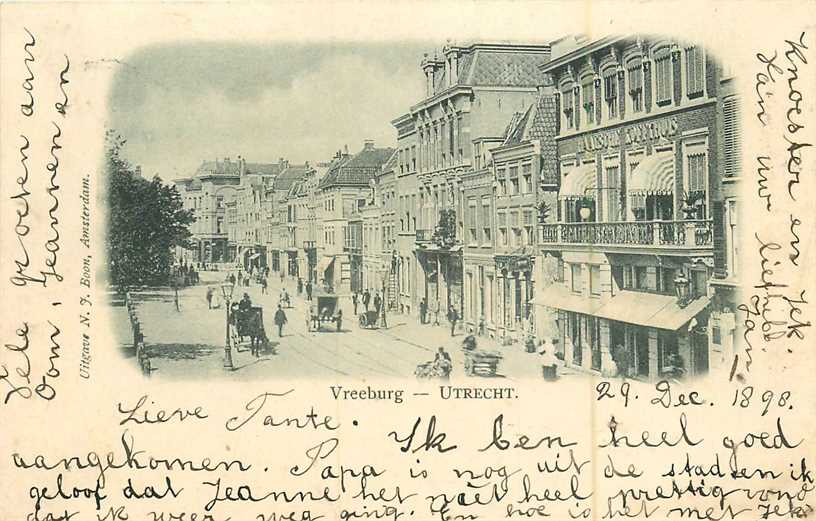 Uitgave N. J. Boon, Amsterdam.
Vreeburg — UTRECHT.
29. Dec. 1898.
Lieve Tante.
Ik ben heel goed
aangekomen. Papa is nog uit de stad en ik
geloof dat Jeanne het niet heel prettig vond
dat ik weer weg ging. En hoe is het met Jek
Knoester en Jek.
Van uw liefhebb.
Jan
Vele groeten aan
Oom, Jeannen en